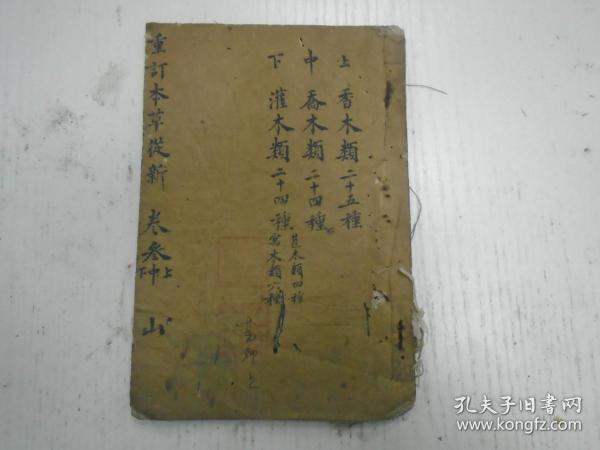 上 香木類 二十五種
中 喬木類 二十四種
下 灌木類 二十四種
苞木類四種
寓木類六種
重訂本草從新 卷叁 上中下 山
孔夫子旧书网
www.kongfz.com